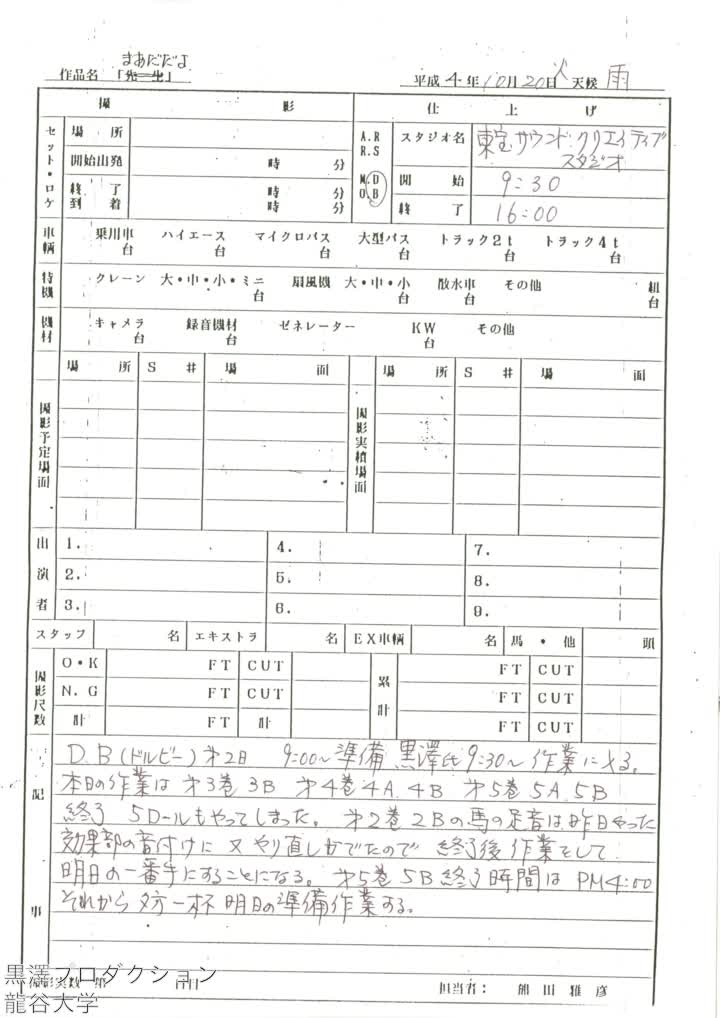 まあだだよ
作品名 「先生」 平成4年10月20日 火 天候 雨
撮影 仕上げ
セット・ロケ 場所 A.R R.S M.O D.B スタジオ名 東宝サウンド・クリエイティブスタジオ
開始出発 時 分 開始 9:30
終了到着 時 分 時 分 終了 16:00
車輌 乗用車 台 ハイエース 台 マイクロバス 台 大型バス 台 トラック2t 台 トラック4t 台
特機 クレーン 大・中・小・ミニ 台 扇風機 大・中・小 台 散水車 台 その他 組 台
機材 キャメラ 台 録音機材 台 ゼネレーター KW 台 その他
撮影予定場面 場所 S# 場面 撮影実績場面 場所 S# 場面
出演者 1. 4. 7.
2. 5. 8.
3. 6. 9.
スタッフ 名 エキストラ 名 EX車輌 名 馬・他 頭
撮影尺数 O・K FT CUT 累計 FT CUT
N.G FT CUT FT CUT
計 FT 計 FT CUT
記事
D.B(ドルビー)第2日 9:00〜準備 黒澤氏9:30〜作業に入る。
本日の作業は第3巻3B 第4巻4A.4B 第5巻5A.5B
終了 5ロールもやってしまった。第2巻2Bの馬の足音は昨日やった
効果部の音付けに又やり直しがでたので 終了後作業をして
明日の一番手にすることになる。第5巻5B終了時間はPM4:00
それから夕方一杯明日の準備作業する。
撮影実数 第 日目 担当者: 熊田雅彦
黒澤プロダクション
龍谷大学